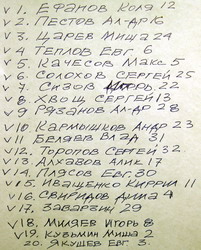 v 1. ЕФАНОВ КОЛЯ 12
v 2. ПЕСТОВ АЛ-ДР 16
v 3. ЦАРЕВ МИША 24
v 4. ТЕПЛОВ ЕВГ 6
v 5. КАЧЕСОВ МАКС 5
v 6. СОЛОХОВ СЕРГЕЙ 25
v 7. СИЗОВ ИГОРЬ 22
v 8. ХВОЩ СЕРГЕЙ 13
v 9 РЯЗАНОВ АЛ-ДР 28
v 10 КАРМЫШКОВ АНДР 23
v 11 БЕЛЯЕВ ВЛАД 31
v 12. ТОРОПОВ СЕРГЕЙ 32.
v 13. АЛХАЗОВ АЛИК 17
v 14. ПЛЯСОВ ЕВГ. 30
v 15. ИВАЩЕНКО КИРИЛЛ 11
v 16. СВИРИДОВ ДИМА 4
v 17. ЗАВАРЗИН 29
v 18. МИЛЯЕВ ИГОРЬ 8
v 19. КУЗЬМИН МИША 2
20. ЯКУШЕВ ЕВГ 3.